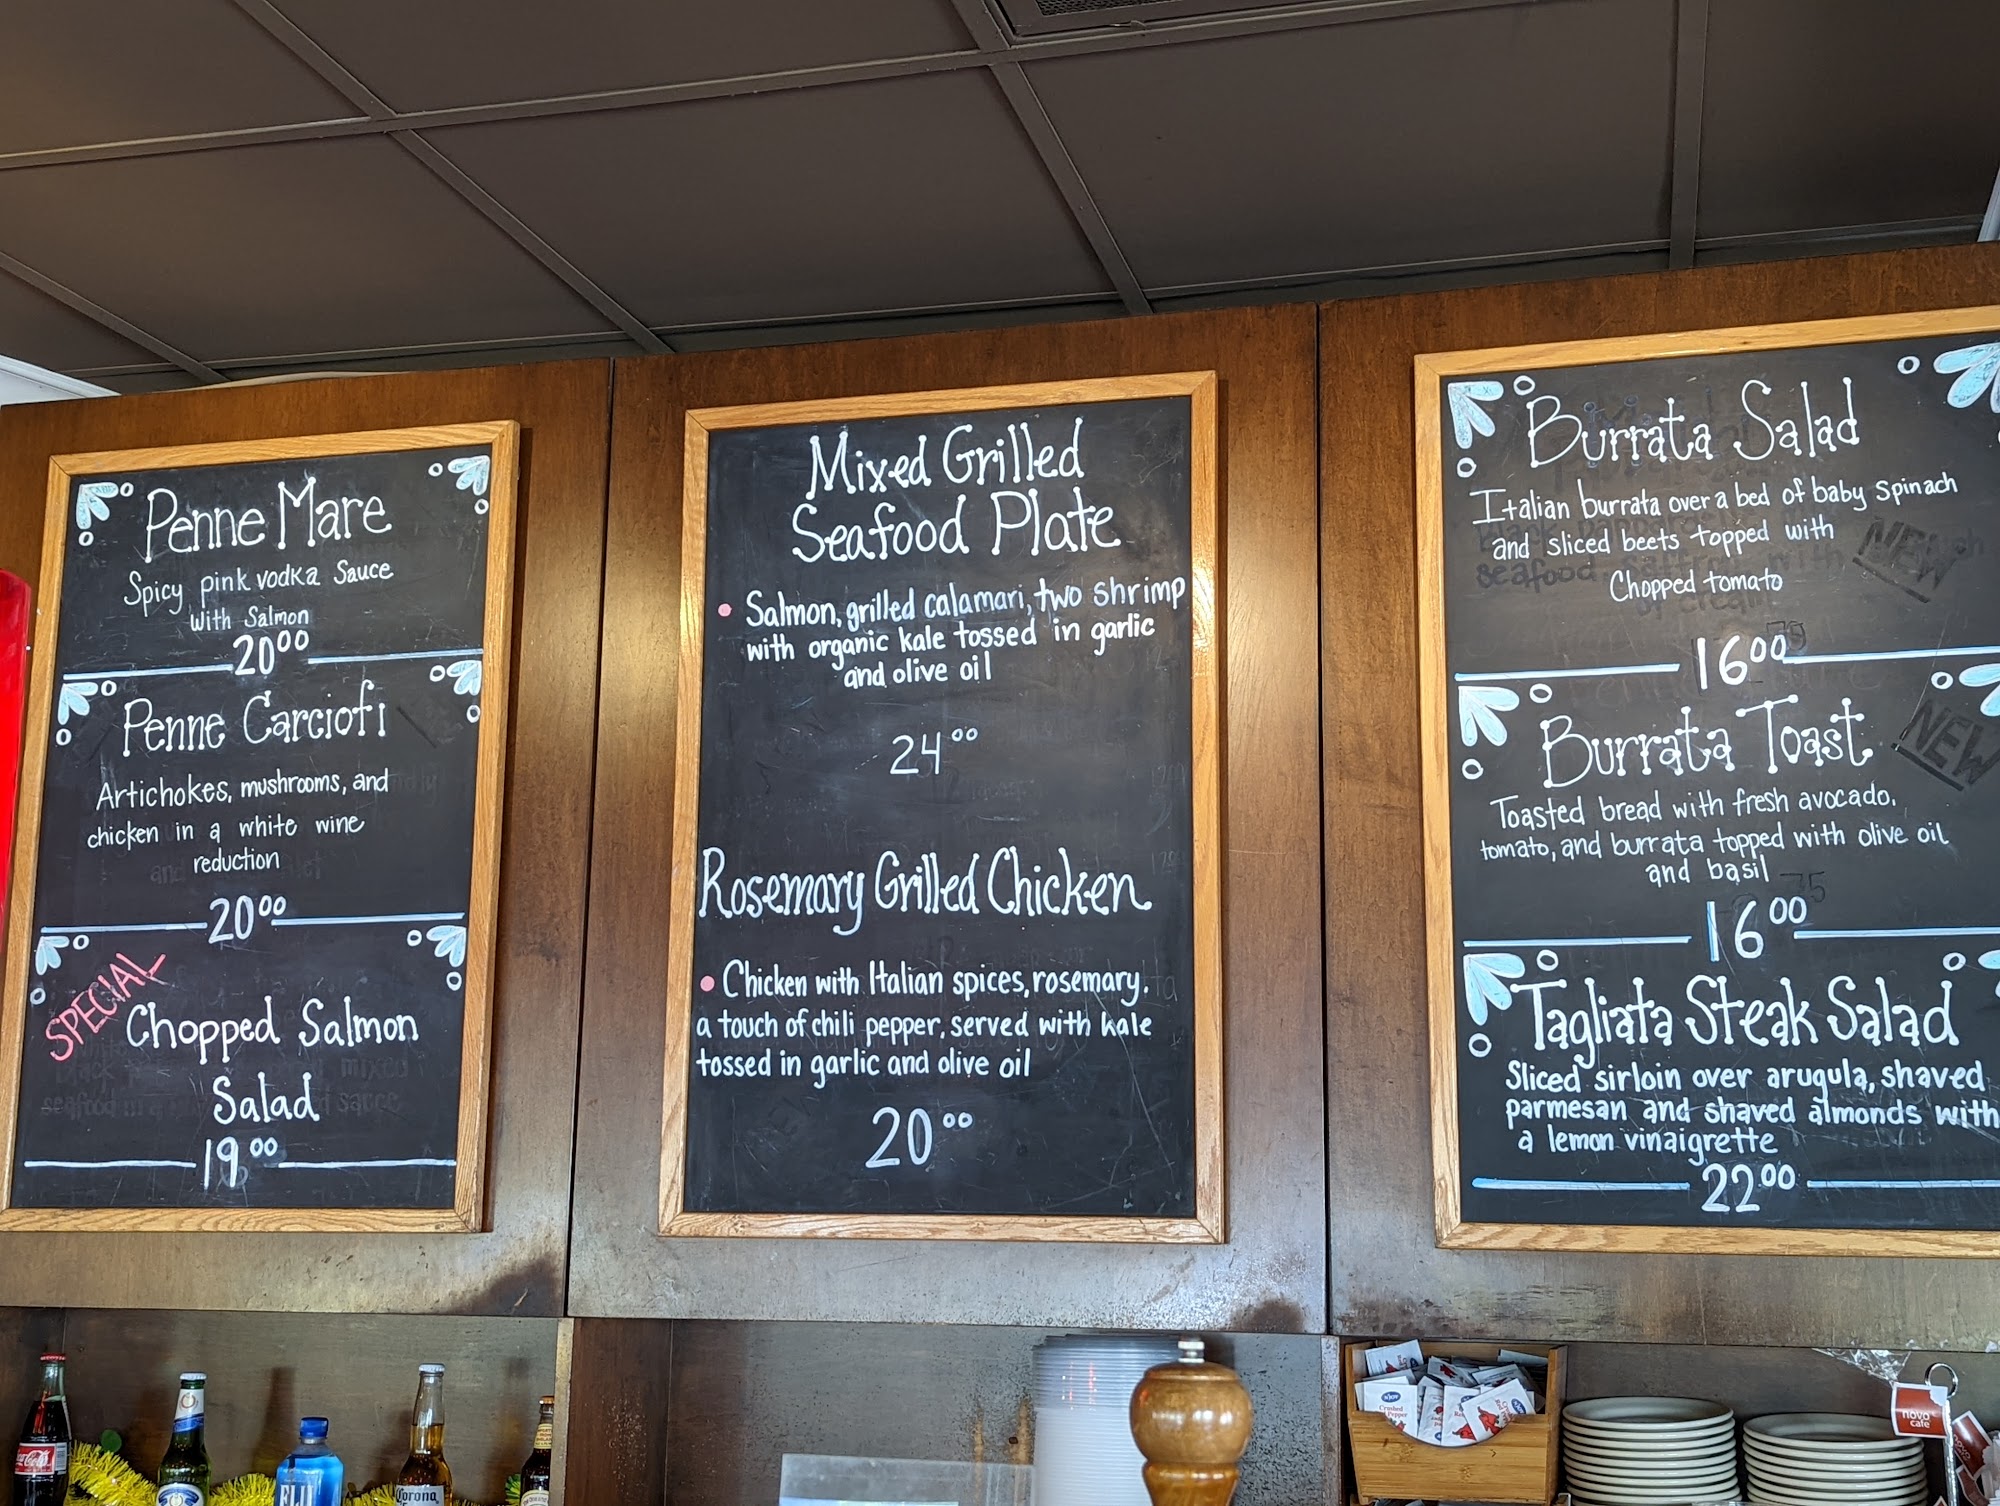 Penne Mare
Spicy pink vodka Sauce
With Salmon
20⁰⁰
Penne Carciofi
Artichokes, mushrooms, and
chicken in a white wine
reduction
20⁰⁰
SPECIAL
Chopped Salmon
Salad
19⁰⁰
Mixed Grilled
Seafood Plate
Salmon, grilled calamari, two shrimp
with organic kale tossed in garlic
and olive oil
24⁰⁰
Rosemary Grilled Chicken
Chicken with Italian spices, rosemary.
a touch of chili pepper, served with kale
tossed in garlic and olive oil
20⁰⁰
Burrata Salad
Italian burrata over a bed of baby spinach
and sliced beets topped with
Chopped tomato
NEW
16⁰⁰
Burrata Toast
NEW
Toasted bread with fresh avocado.
tomato, and burrata topped with olive oil
and basil
16⁰⁰
Tagliata Steak Salad
Sliced sirloin over arugula, shaved
parmesan and shaved almonds with
a lemon vinaigrette
22⁰⁰
Coca-Cola
FIJI
Corona
Crushed
Pepper
novo
cafe